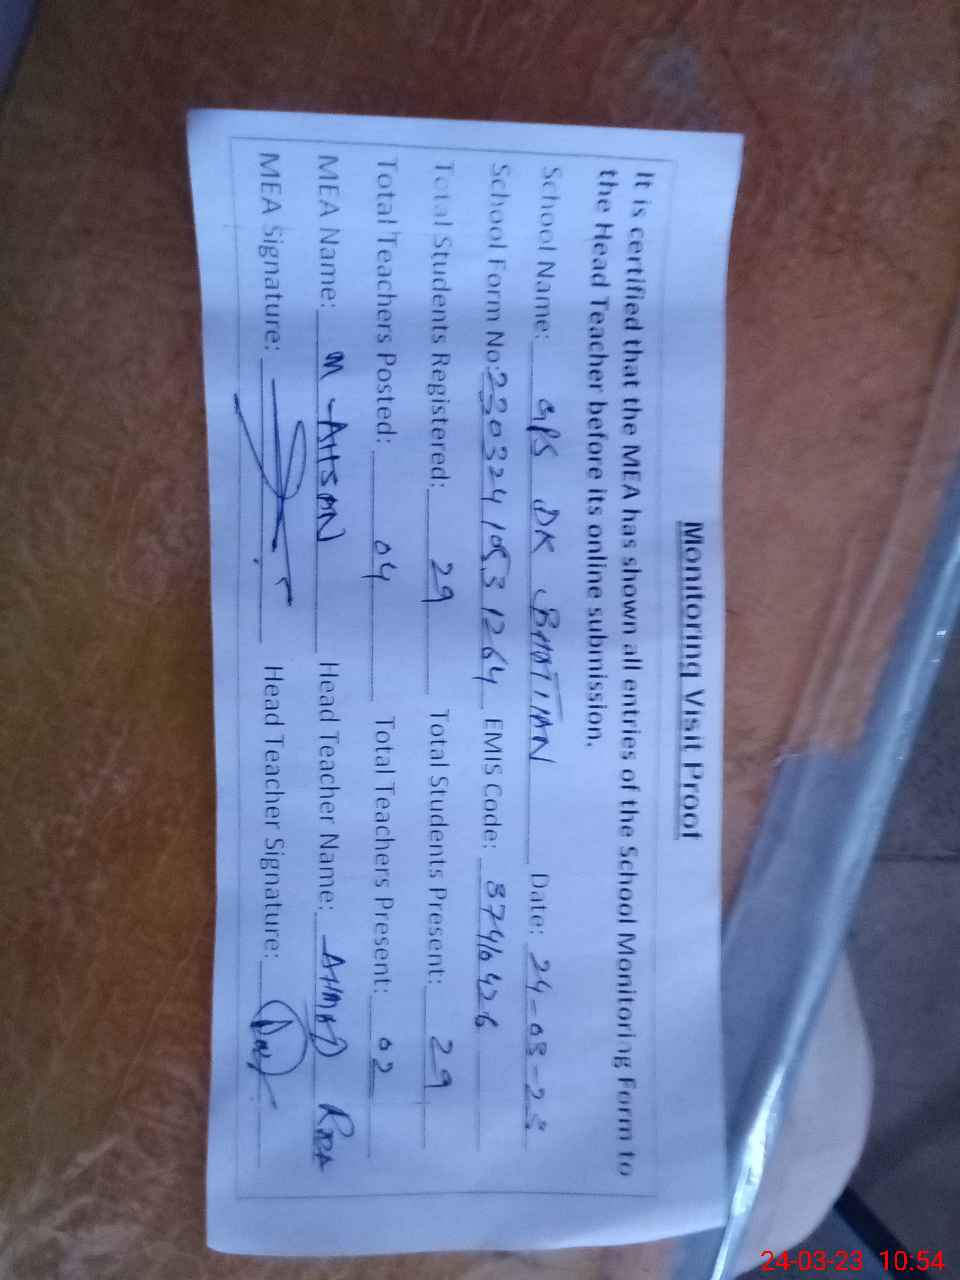 Monitoring Visit Proof
It is certified that the MEA has shown all entries of the School Monitoring Form to
the Head Teacher before its online submission.
School Name: GPS DK BHATTIAN Date: 24-03-23
School Form No: 23032410531264 EMIS Code: 37410426
Total Students Registered: 29 Total Students Present: 29
Total Teachers Posted: 04 Total Teachers Present: 02
MEA Name: M-AHSAN Head Teacher Name: AHMAD RAZA
MEA Signature: Head Teacher Signature:
24-03-23 10:54